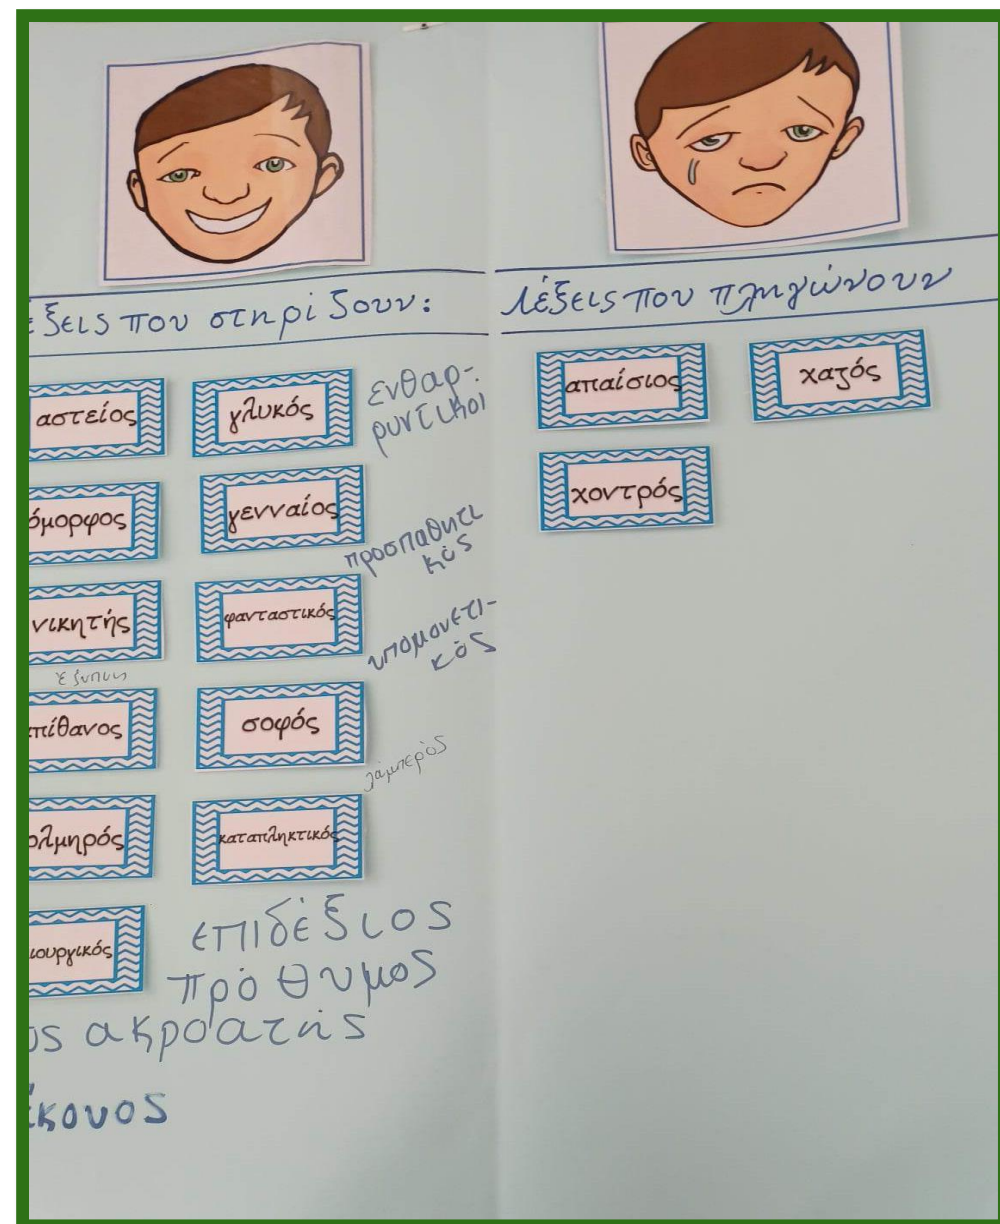 έξεις που στηρίζουν:
αστείος
γλυκός
ενθαρ-
ρυντικοί
όμορφος
γενναίος
προσπαθητι
κός
νικητής
φανταστικός
υπομονετι-
κός
πίθανος
σοφός
λαμπερός
ολμηρός
καταπληκτικός
ιουργικός
επιδέξιος
πρόθυμος
ος ακροατής
Λέξεις που πληγώνουν
απαίσιος
χαζός
χοντρός